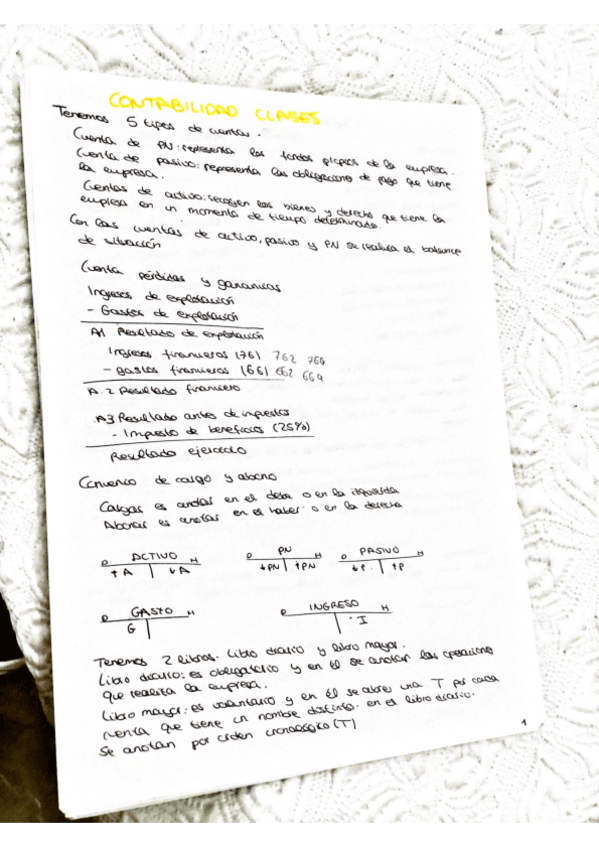 CONTABILIDAD CLASES
Tenemos 5 tipos de cuentas.
Cuenta de PN: representa los fondos propios de la empresa.
Cuenta de pasivo: representa las obligaciones de pago que tiene
la empresa.
Cuentas de activo: recogen los bienes y derechos que tiene la
empresa en un momento de tiempo determinado
Con las cuentas de activo, pasivo y PN se realiza el balance
de situación
Cuenta pérdidas y ganancias
Ingresos de explotación
- Gastos de explotación
A1 Resultado de explotación
Ingresos financieros (76) 762 769
- gastos financieros (66) 662 669
A.2 Resultado financiero
A3 Resultado antes de impuestos
- Impuesto de beneficios (25%)
Resultado ejercicio
Convenio de cargo y abono
Cargar es anotar en el debe o en la izquierda
Abonar es anotar en el haber o en la derecha
D ACTIVO H
↑A ↓A
D PN H
↓PN ↑PN
D PASIVO H
↓P. ↑P
D GASTO H
G
D INGRESO H
I
Tenemos 2 libros. Libro diario y libro mayor.
Libro diario: es obligatorio y en él se anotan las operaciones
que realiza la empresa.
Libro mayor: es voluntario y en él se abre una T por cada
cuenta que tiene un nombre distinto en el libro diario.
Se anotan por orden cronológico (T)
1